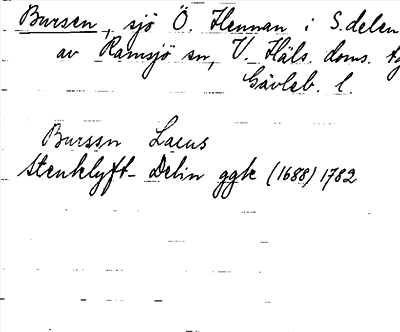 Bursen, sjö Ö. Hennan i S.delen
av Ramsjö sn, V. Häls. doms. tg
Gävleb. l.
Burssn Lacus
Stenklyft- Delin ggk (1688) 1782